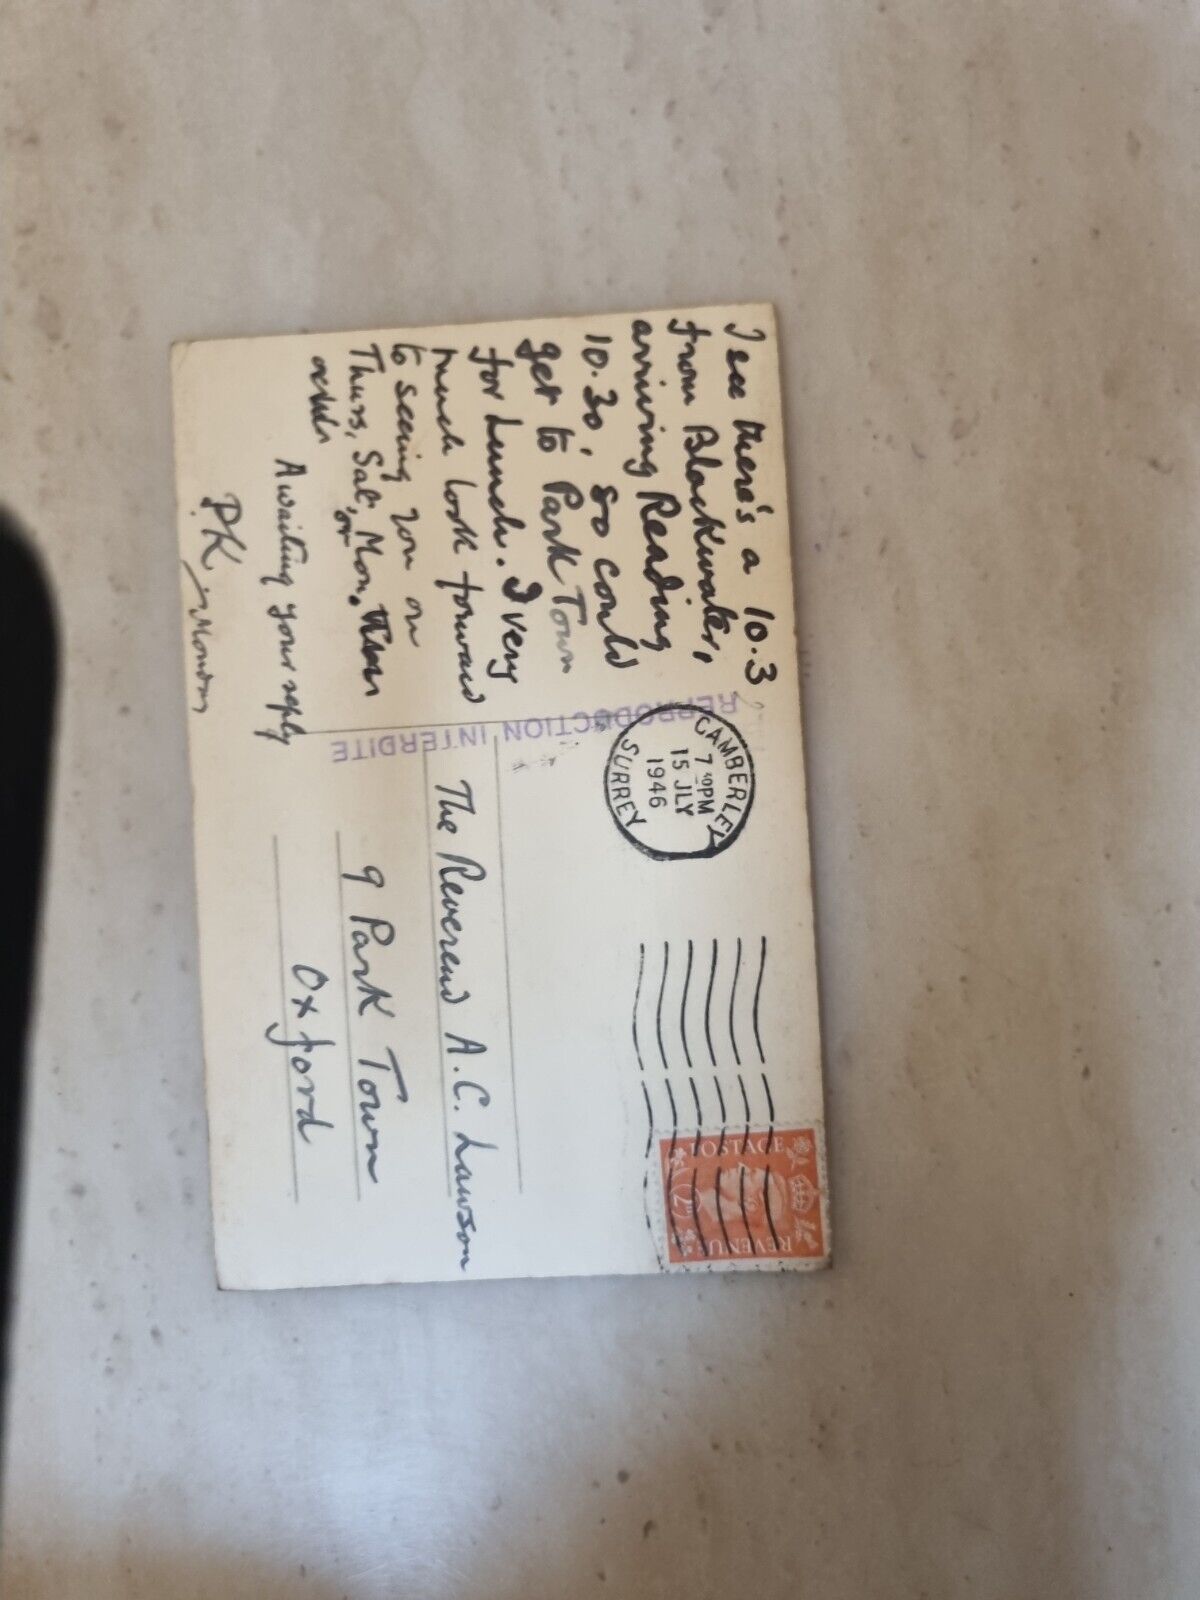 I see there's a 10.3
from Blackwater,
arriving Reading
10.30, so could
get to Park Town
for lunch. I very
much look forward
to seeing you on
Thurs, Sat, or Mon.
Awaiting your reply
P.K.
REPRODUCTION INTERDITE
CAMBERLEY
7 40 PM
15 JLY
1946
SURREY
POSTAGE
REVENUE
The Reverend A.C. Lawson
9 Park Town
Oxford